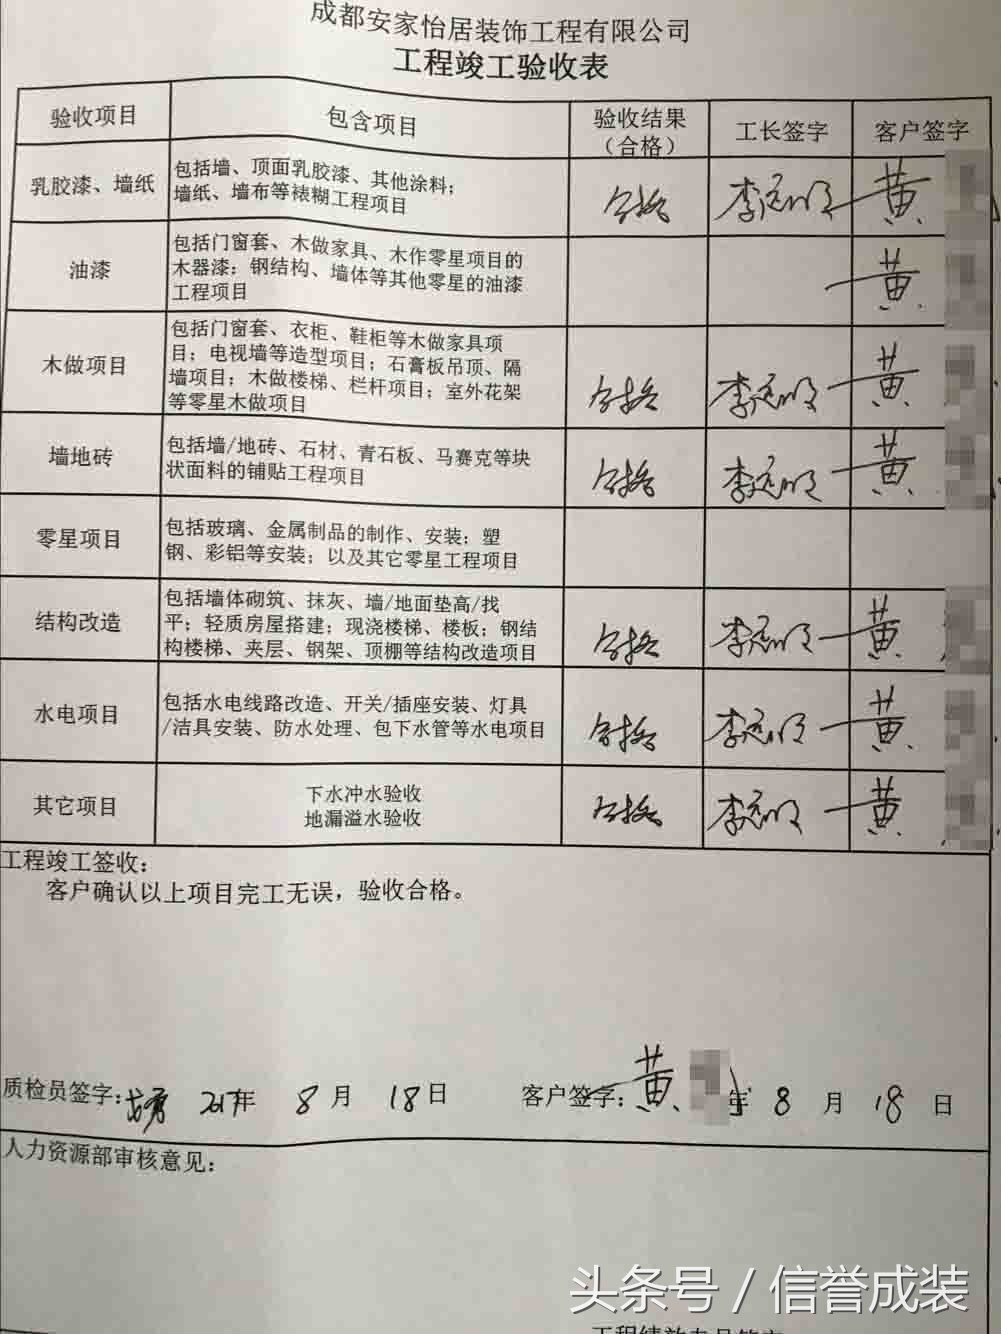 成都安家怡居装饰工程有限公司
工程竣工验收表
验收项目 包含项目 验收结果（合格） 工长签字 客户签字
乳胶漆、墙纸 包括墙、顶面乳胶漆、其他涂料；
墙纸、墙布等裱糊工程项目 合格 李远明 黄
油漆 包括门窗套、木做家具、木作零星项目的
木器漆；钢结构、墙体等其他零星的油漆
工程项目 黄
木做项目 包括门窗套、衣柜、鞋柜等木做家具项
目；电视墙等造型项目；石膏板吊顶、隔
墙项目；木做楼梯、栏杆项目；室外花架
等零星木做项目 合格 李远明 黄
墙地砖 包括墙/地砖、石材、青石板、马赛克等块
状面料的铺贴工程项目 合格 李远明 黄
零星项目 包括玻璃、金属制品的制作、安装；塑
钢、彩铝等安装；以及其它零星工程项目
结构改造 包括墙体砌筑、抹灰、墙/地面垫高/找
平；轻质房屋搭建；现浇楼梯、楼板；钢结
构楼梯、夹层、钢架、顶棚等结构改造项目 合格 李远明 黄
水电项目 包括水电线路改造、开关/插座安装、灯具
/洁具安装、防水处理、包下水管等水电项目 合格 李远明 黄
其它项目 下水冲水验收
地漏溢水验收 合格 李远明 黄
工程竣工签收：
客户确认以上项目完工无误，验收合格。
质检员签字： 2017年 8月 18日 客户签字：黄 年 8月 18日
人力资源部审核意见：
头条号 / 信誉成装